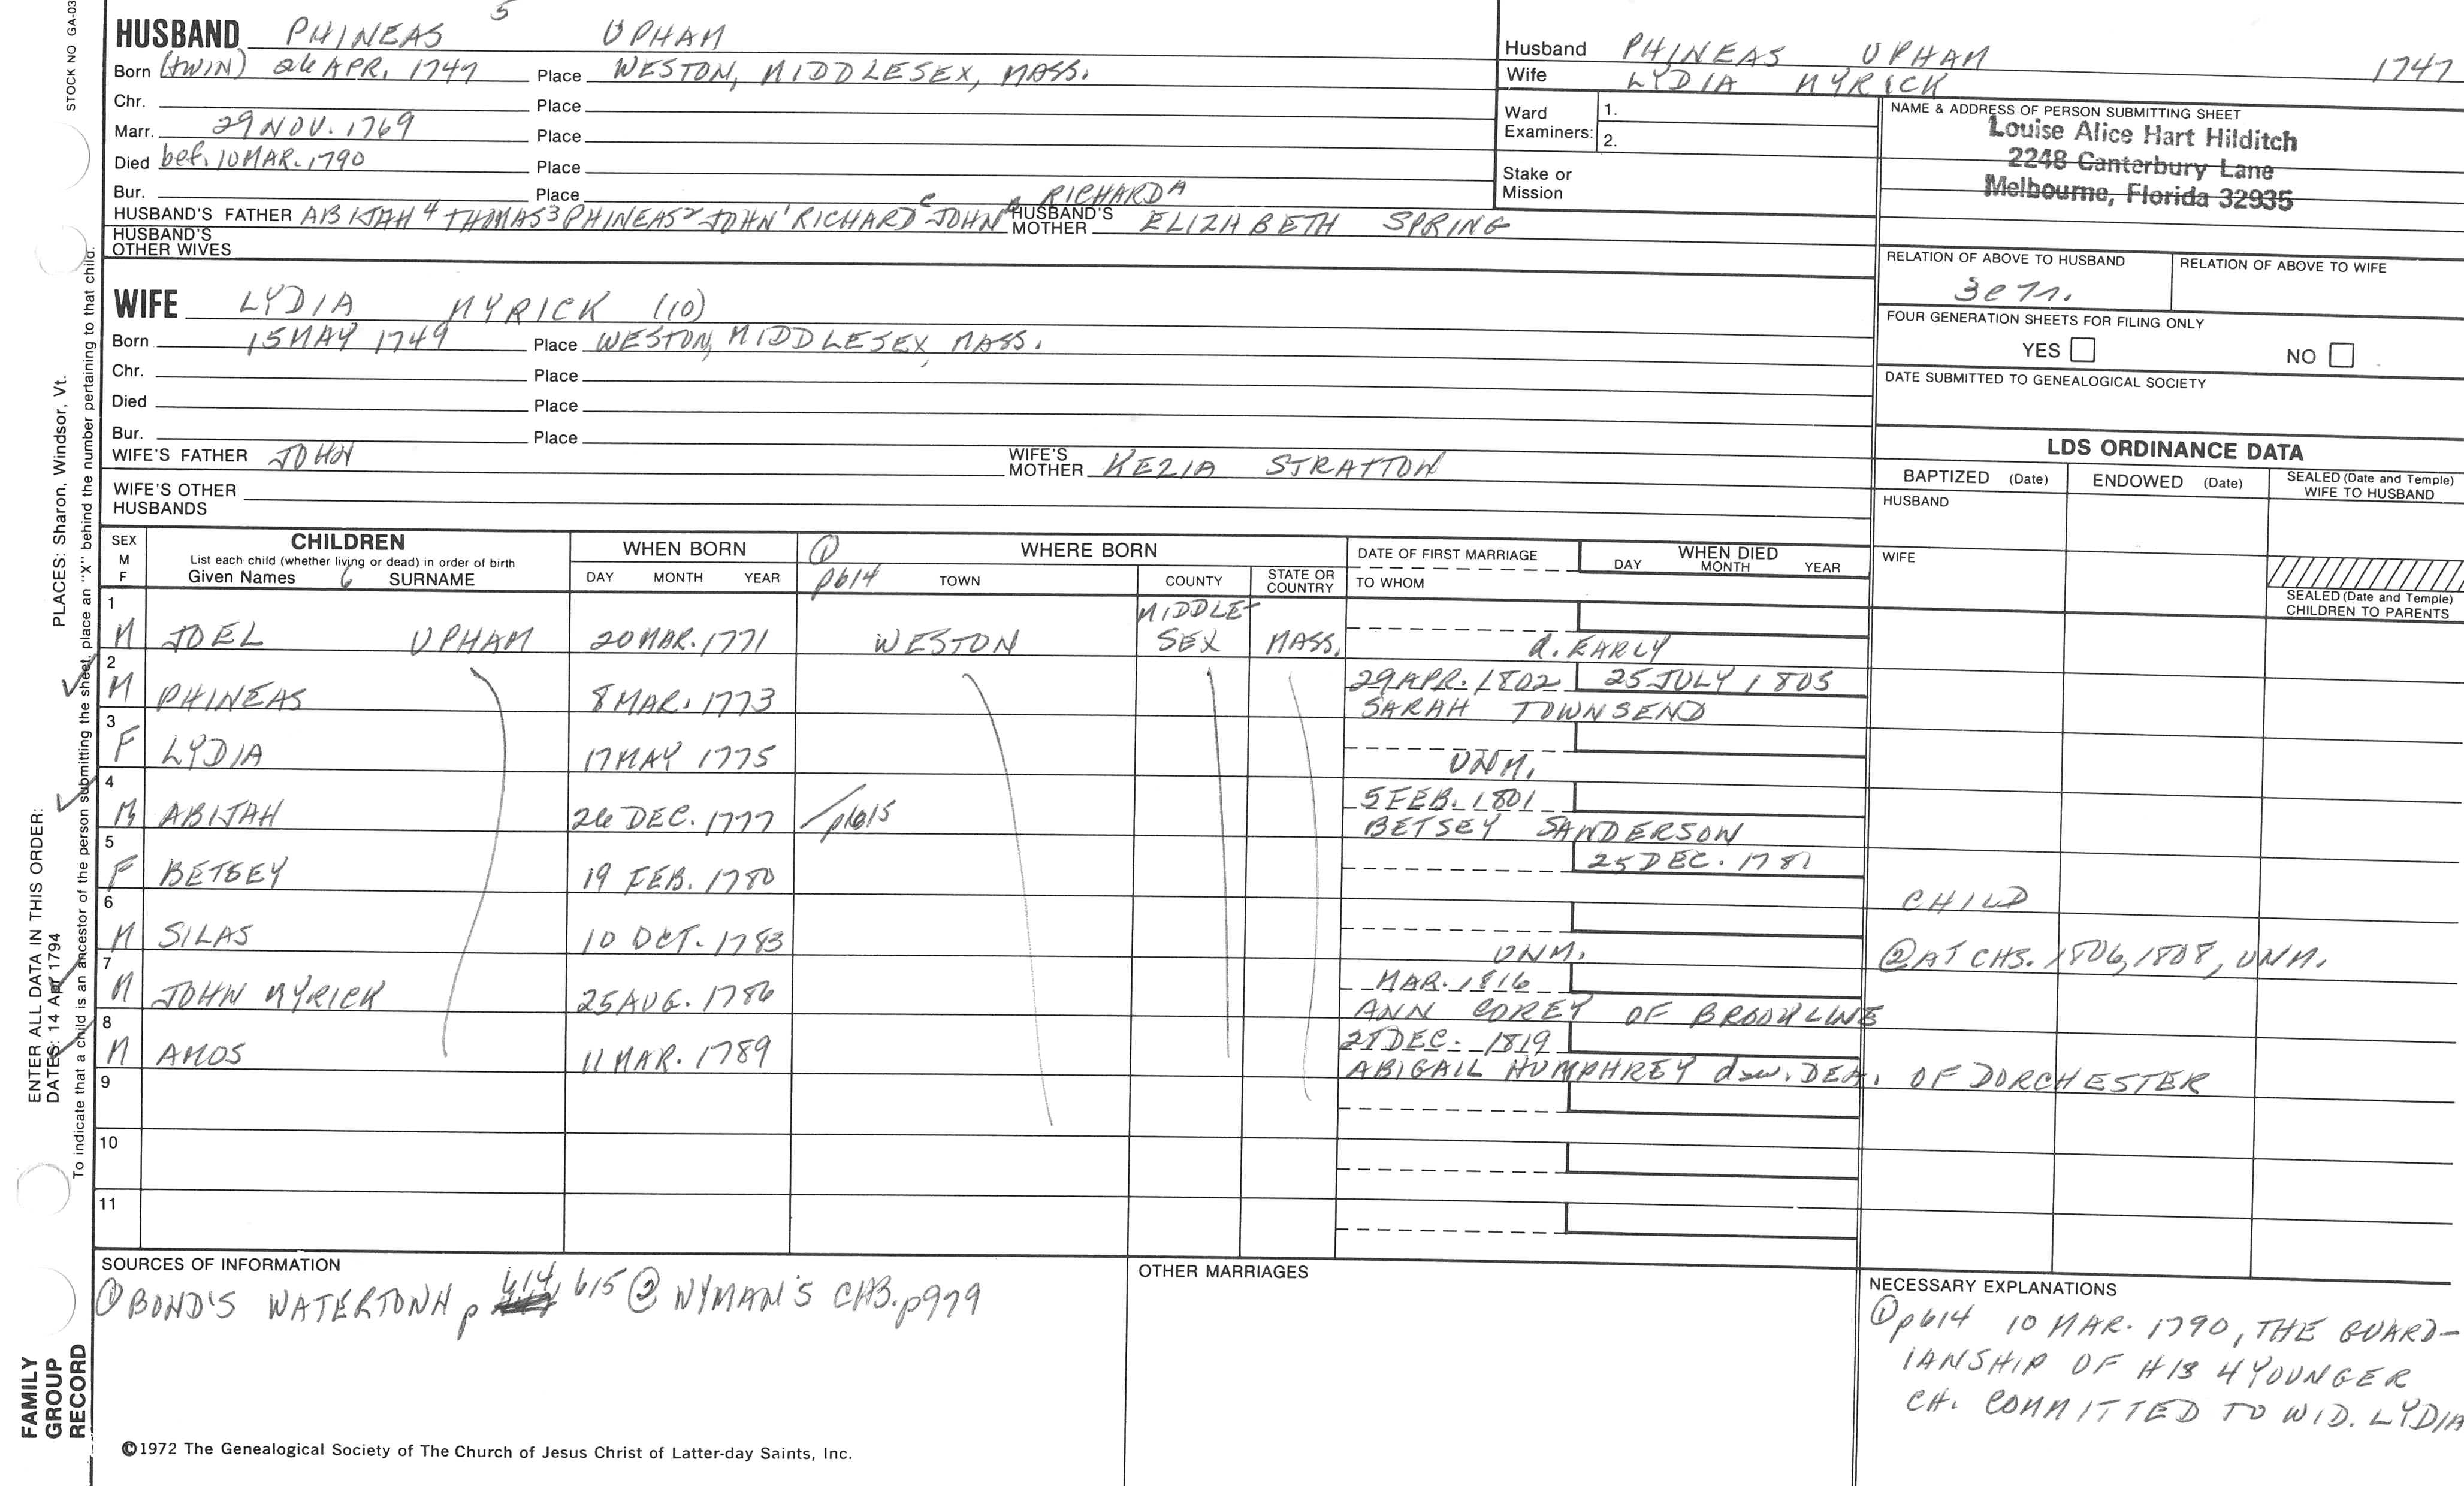 5
HUSBAND PHINEAS UPHAM
Born (TWIN) 26 APR. 1747 Place WESTON, MIDDLESEX, MASS.
Chr. Place
Marr. 29 NOV. 1769 Place
Died bef. 10 MAR. 1790 Place
Bur. Place
HUSBAND'S FATHER ABIJAH 4 THOMAS 3 PHINEAS 2 JOHN 1 RICHARD C JOHN RICHARD A HUSBAND'S MOTHER ELIZABETH SPRING
HUSBAND'S OTHER WIVES
Husband PHINEAS UPHAM 1747
Wife LYDIA MYRICK
Ward Examiners: 1.
2.
Stake or Mission
NAME & ADDRESS OF PERSON SUBMITTING SHEET
Louise Alice Hart Hilditch
2248 Canterbury Lane
Melbourne, Florida 32935
RELATION OF ABOVE TO HUSBAND RELATION OF ABOVE TO WIFE
FOUR GENERATION SHEETS FOR FILING ONLY
YES NO
DATE SUBMITTED TO GENEALOGICAL SOCIETY
WIFE LYDIA MYRICK (10)
Born 15 MAY 1749 Place WESTON, MIDDLESEX, MASS.
Chr. Place
Died Place
Bur. Place
WIFE'S FATHER JOHN WIFE'S MOTHER KEZIA STRATTON
WIFE'S OTHER HUSBANDS
LDS ORDINANCE DATA
BAPTIZED (Date) ENDOWED (Date) SEALED (Date and Temple) WIFE TO HUSBAND
HUSBAND
WIFE
SEALED (Date and Temple) CHILDREN TO PARENTS
SEX M F CHILDREN
List each child (whether living or dead) in order of birth
Given Names 6 SURNAME
WHEN BORN
DAY MONTH YEAR
① p614 WHERE BORN
TOWN COUNTY STATE OR COUNTRY
DATE OF FIRST MARRIAGE
TO WHOM
WHEN DIED
DAY MONTH YEAR
1 M JOEL UPHAM 20 MAR. 1771 WESTON MIDDLE-SEX MASS. d. EARLY
2 M PHINEAS 8 MAR. 1773 29 APR. 1802 25 JULY 1805
SARAH TOWNSEND
3 F LYDIA 17 MAY 1775 UNM.
4 M ABIJAH 26 DEC. 1777 p615 5 FEB. 1801
BETSEY SANDERSON
5 F BETSEY 19 FEB. 1780 25 DEC. 1781
CHILD
6 M SILAS 10 OCT. 1783 UNM. ② AT CHS. 1806, 1808, UNM.
7 M JOHN MYRICK 25 AUG. 1786 MAR. 1816
ANN COREY OF BROOKLINE
8 M AMOS 11 MAR. 1789 DEC. 1819
ABIGAIL HUMPHREY DEA. OF DORCHESTER
9
10
11
SOURCES OF INFORMATION
① BOND'S WATERTOWN p 614, 615 ② WYMAN'S CHS. p979
OTHER MARRIAGES
NECESSARY EXPLANATIONS
① p614 10 MAR. 1790, THE GUARD-
IANSHIP OF HIS 4 YOUNGER
CH. COMMITTED TO WID. LYDIA
©1972 The Genealogical Society of The Church of Jesus Christ of Latter-day Saints, Inc.
STOCK NO GA-03
ENTER ALL DATA IN THIS ORDER:
PLACES: Sharon, Windsor, Vt.
DATES: 14 Apr 1794
To indicate that a child is an ancestor of the person submitting the sheet, place an "X" behind the number pertaining to that child.
FAMILY
GROUP
RECORD